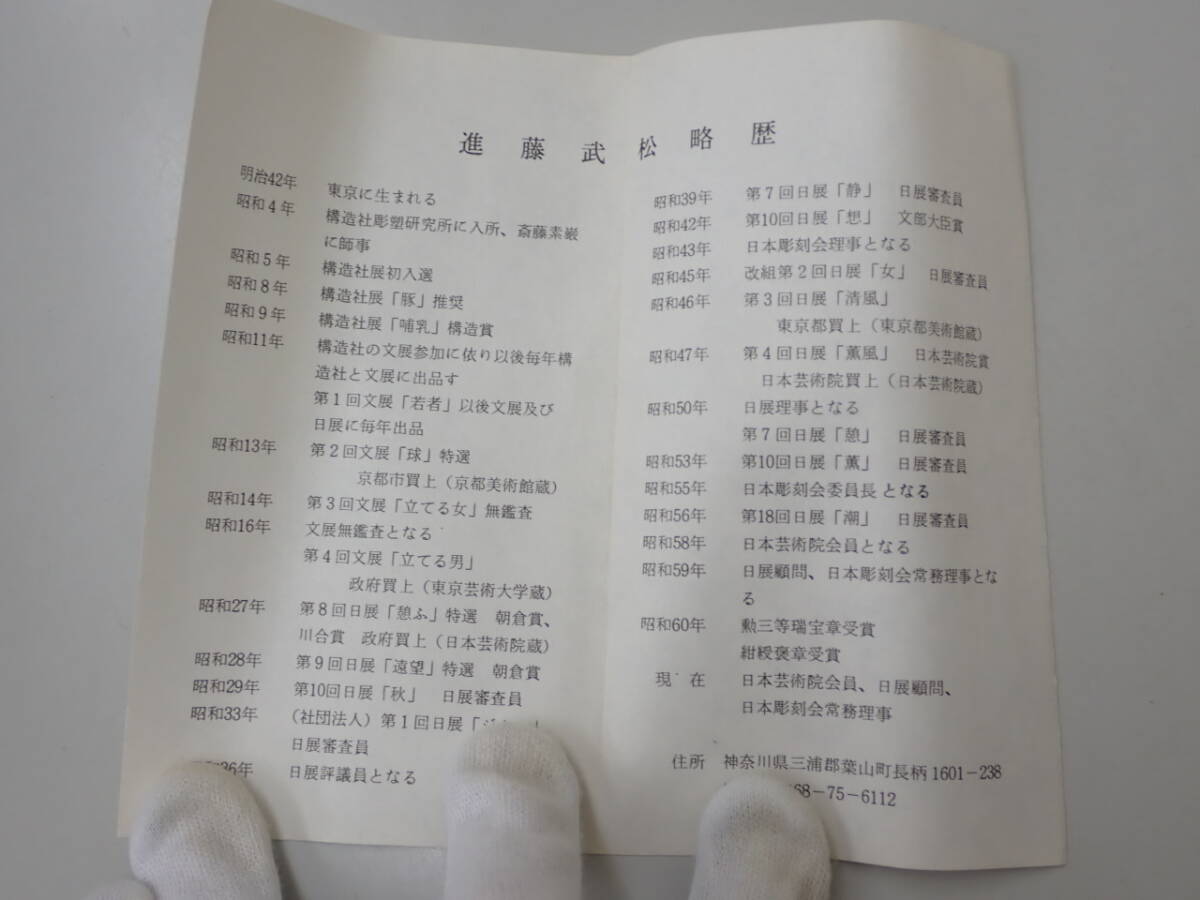 進藤武松略歴
明治42年 東京に生まれる
昭和4年 構造社彫塑研究所に入所、斎藤素巌
に師事
昭和5年 構造社展初入選
昭和8年 構造社展「豚」推奨
昭和9年 構造社展「哺乳」構造賞
昭和11年 構造社の文展参加に依り以後毎年構
造社と文展に出品す
第1回文展「若者」以後文展及び
日展に毎年出品
昭和13年 第2回文展「球」特選
京都市買上(京都美術館蔵)
昭和14年 第3回文展「立てる女」無鑑査
昭和16年 文展無鑑査となる
第4回文展「立てる男」
政府買上(東京芸術大学蔵)
昭和27年 第8回日展「憩ふ」特選 朝倉賞、
川合賞 政府買上(日本芸術院蔵)
昭和28年 第9回日展「遠望」特選 朝倉賞
昭和29年 第10回日展「秋」 日展審査員
昭和33年 (社団法人)第1回日展「
日展審査員
36年 日展評議員となる
昭和39年 第7回日展「静」 日展審査員
昭和42年 第10回日展「想」 文部大臣賞
昭和43年 日本彫刻会理事となる
昭和45年 改組第2回日展「女」 日展審査員
昭和46年 第3回日展「清風」
東京都買上(東京都美術館蔵)
昭和47年 第4回日展「薫風」 日本芸術院賞
日本芸術院買上(日本芸術院蔵)
昭和50年 日展理事となる
第7回日展「憩」 日展審査員
昭和53年 第10回日展「薫」 日展審査員
昭和55年 日本彫刻会委員長となる
昭和56年 第18回日展「潮」 日展審査員
昭和58年 日本芸術院会員となる
昭和59年 日展顧問、日本彫刻会常務理事とな
る
昭和60年 勲三等瑞宝章受賞
紺綬褒章受賞
現在 日本芸術院会員、日展顧問、
日本彫刻会常務理事
住所 神奈川県三浦郡葉山町長柄1601-238
68-75-6112